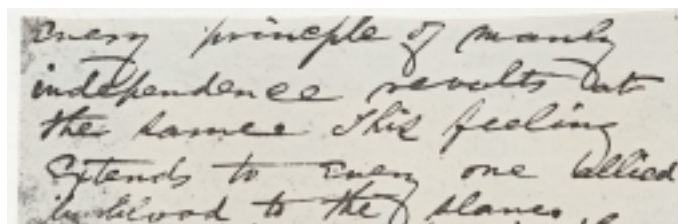 every principle of manly
independence revolts at
the same This feeling
Extends to every one allied
in blood to the slaves